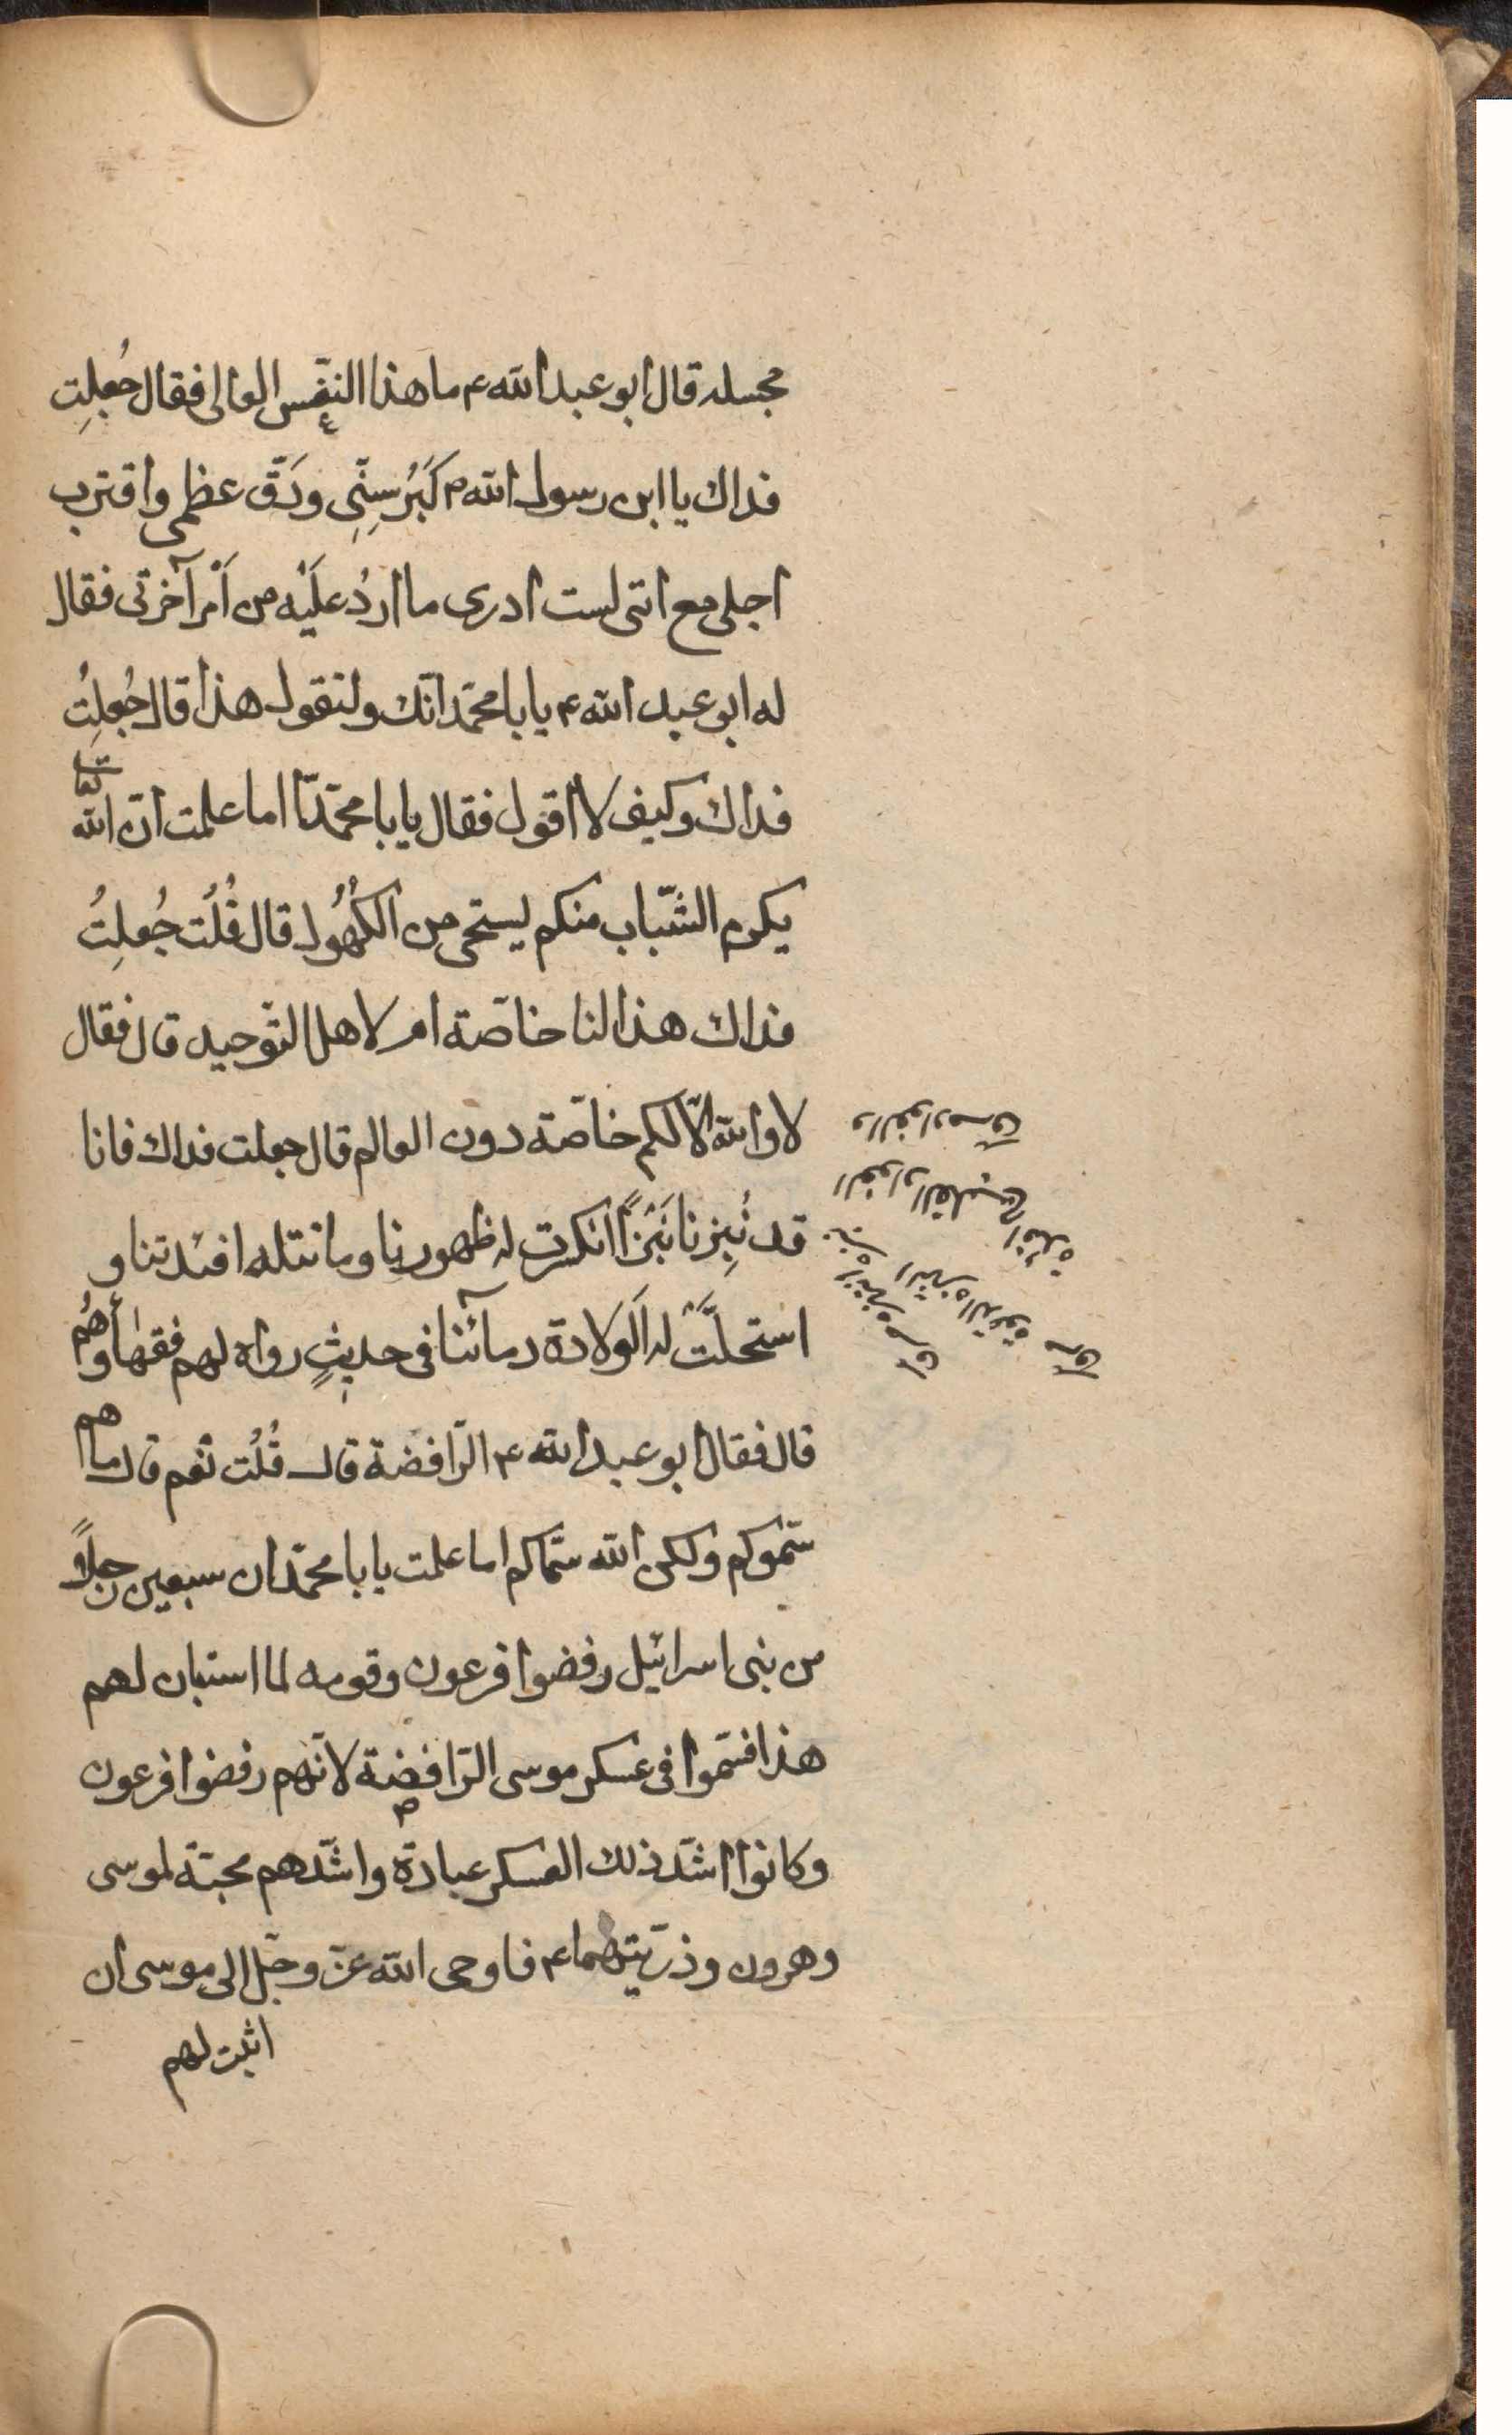 مجسله قال ابو عبد الله ع ما هذا النفّس العالى فقال جُعلِت
فداك يا ابن رسول الله ص كَبَرُ سِنِّى ودَقّ عظمى واقترب
اجلى مع انّنى لست ادرى ما اردُ علَيْه من اَمْر آخرتى فقال
له ابو عبد الله ع يا با محمّد انّك ولتقول هذا قال جُعلِتُ
فداك وكيف لا اقول فقال يا با محمّد امّا اما علمت انّ الله تعا
يكرم الشّباب منكم ليستحى من الكُهُول قال قُلُت جُعلِتُ
فداك هذا لنا خاصّة ام لاهل التّوحيد قال فقال
لا والله الّا لكم خاصّة دون العالم قال جعلت فداك فانا
قد نُبِزنا نَبَزًا انكسرت له ظهورنا وماتتله افئدتنا و
استحلّتْ له الَولادة دمآئنا فى حديثٍ رواه لهم فقهاؤهُم
قال فقال ابو عبد الله ع الرّافضة قال قُلُت نعم قال ما هم
سّموكم ولكن الله سّماكم اما علمت يا با محمّد ان سبعين رجلاً
من بنى اسرائيل رفضوا فرعون وقومه لما استبان لهم
هذا فسّموا فى عسكر موسى الرّافضة لانّهم رفضوا فرعون
وكانوا اشدّ ذلك العسكر عبادة واشدّهم محبّة لموسى
وهرون وذرّيتهما ع فاوحى الله عزّ وجّل الى موسى ان
اثبت لهم
الفواد القلب ج افئدة